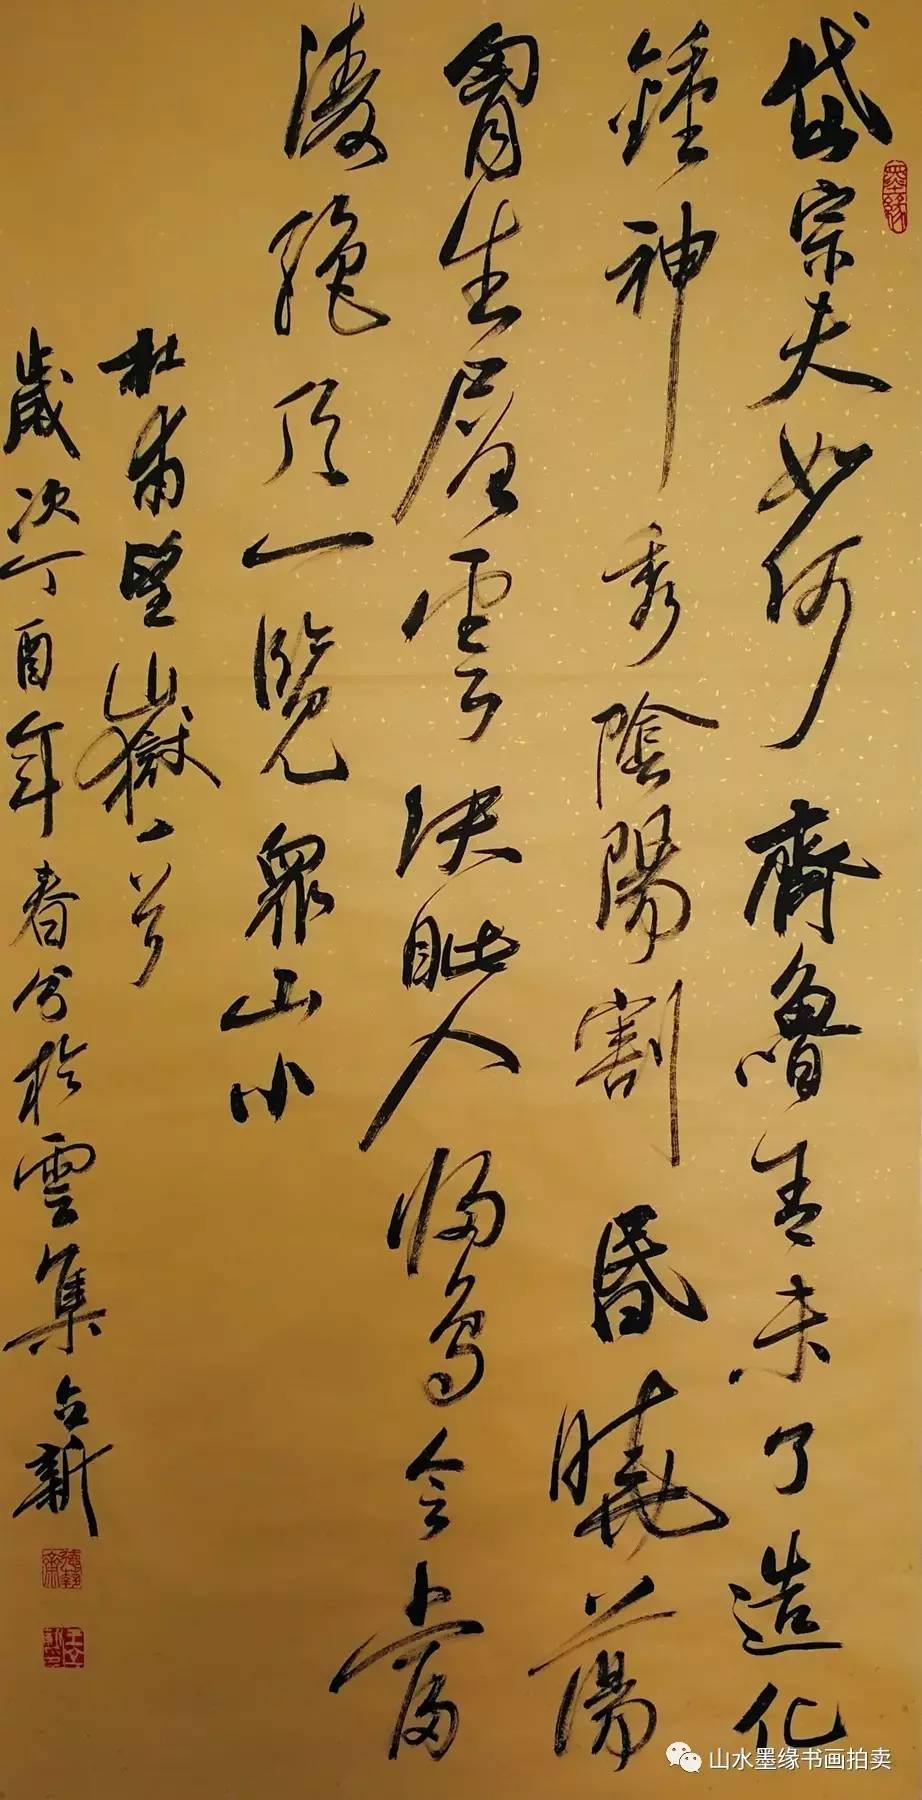 岱宗夫如何齊魯青未了造化
鍾神秀陰陽割昏曉蕩
胷生層雲決眦入歸鳥會當
淩絕頂一覽眾山小
杜甫望嶽一首
歲次丁酉年春分於雲集占新
墨緣
山水墨缘书画拍卖